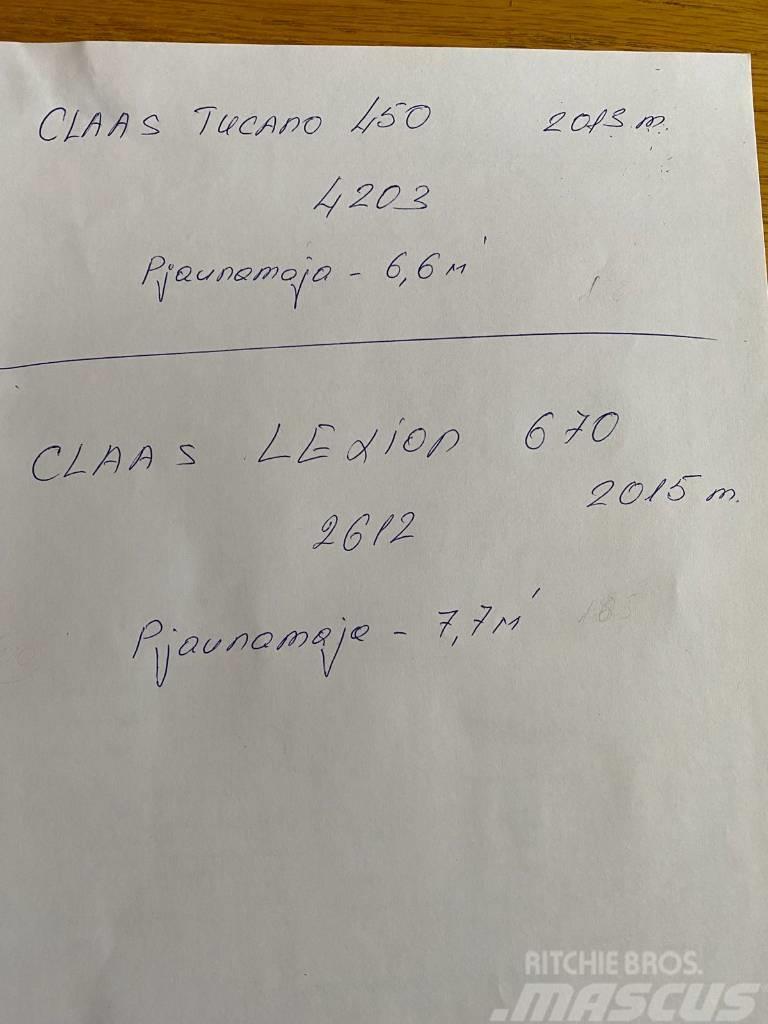 CLAAS TUCANO 450 2013 m.
4203
Pjaunamoja - 6,6 м
CLAAS LEXION 670
2015 m.
2612
Pjaunamaja - 7,7 м
RITCHIE BROS.
MASCUS